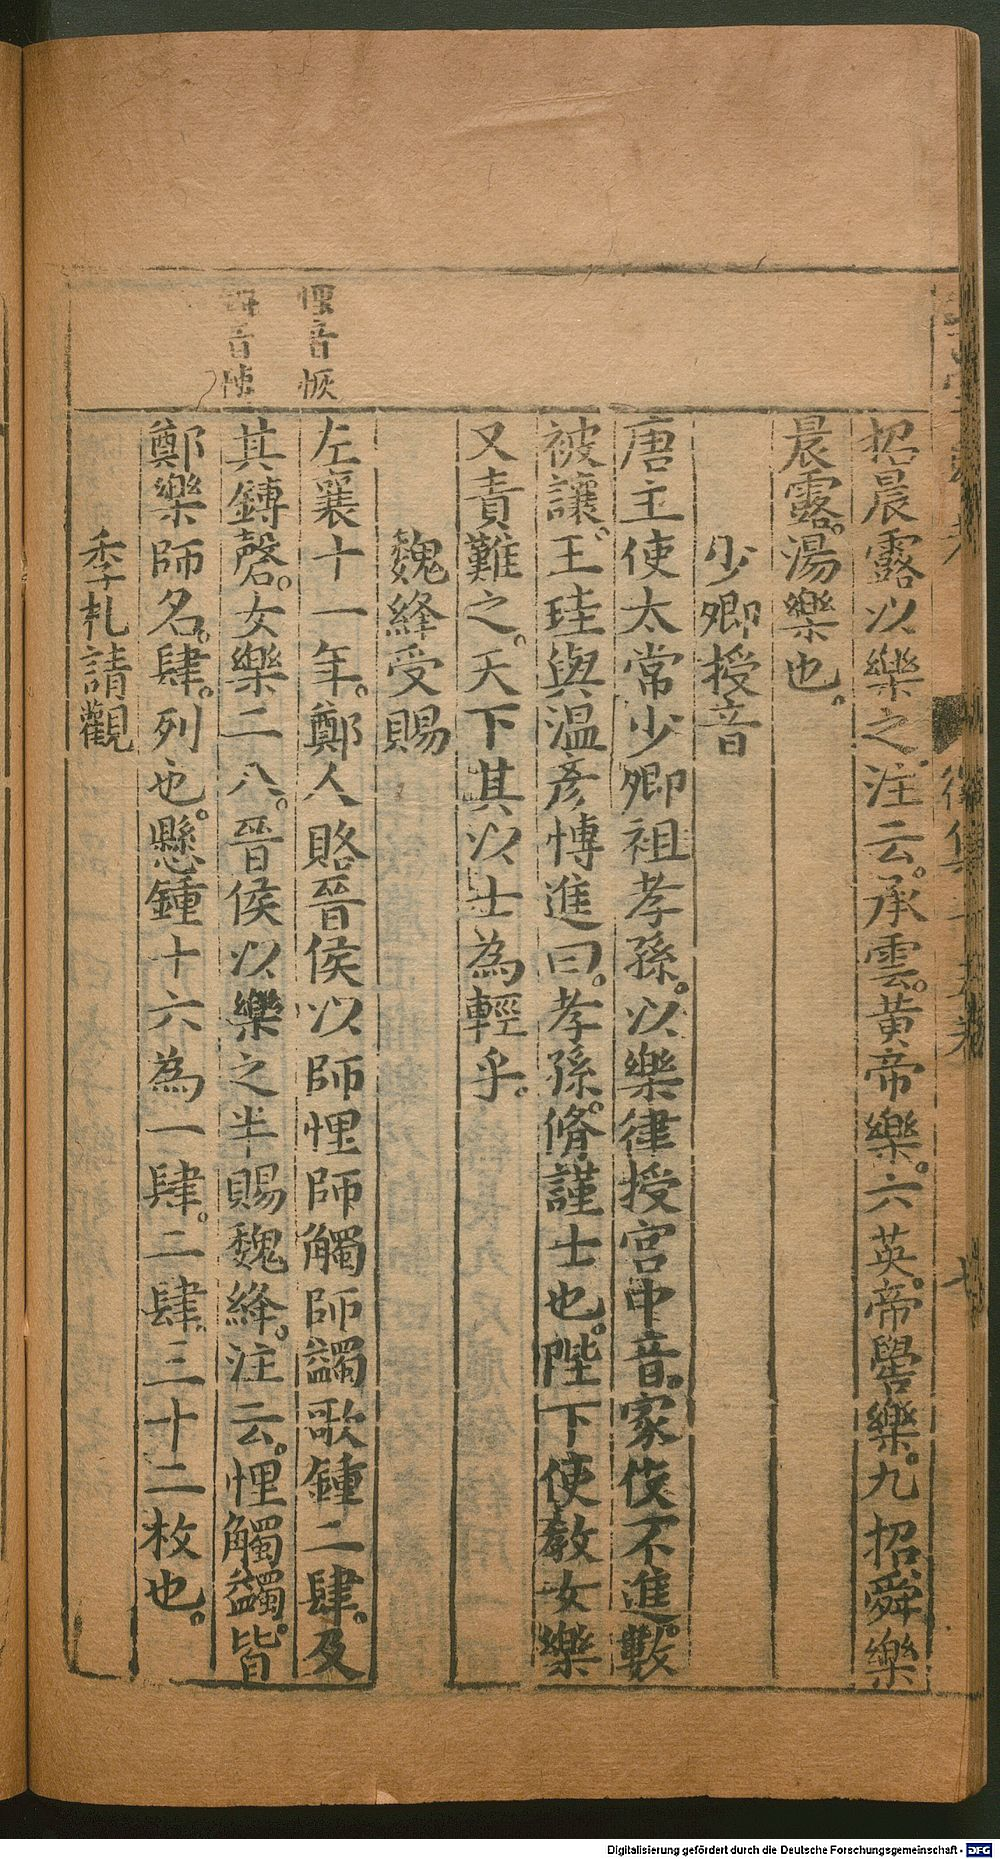 悝音恢
音
招晨露以樂之注云。承雲。黃帝樂。六英。帝嚳樂。九招舜樂
晨露。湯樂也。
少卿授音
唐主使太常少卿祖孝孫。以樂律授宮中音。家伎不進。數
被讓。王珪與温彥愽進曰。孝孫。脩謹士也。陛下使敎女樂
又責難之。天下其以士為輕乎。
魏絳受賜
左襄十一年。鄭人賂晉侯以師悝師觸師蠲歌鍾二肆。及
其鏄磬。女樂二八。晉侯以樂之半賜魏絳。注云。悝觸蠲。皆
鄭樂師名。肆。列也。懸鍾十六為一肆。二肆三十二枚也。
季札請觀
Digitalisierung gefördert durch die Deutsche Forschungsgemeinschaft - DFG